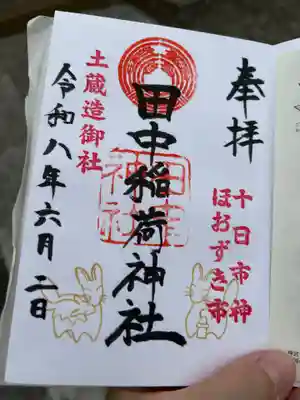 奉拝
十日市神
ほおずき市
田中稲荷神社
土蔵造御社
令和八年六月二日